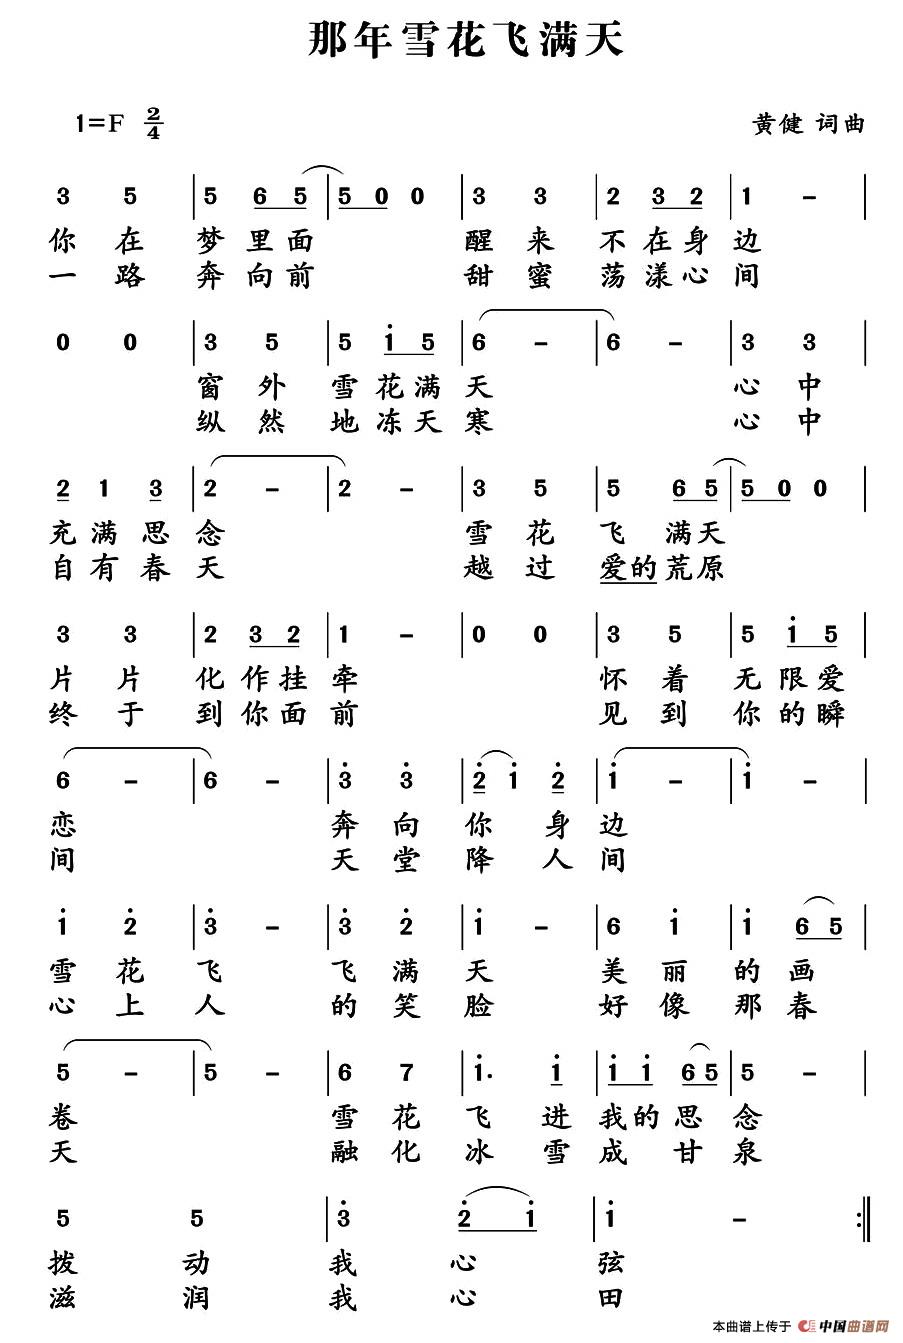 那年雪花飞满天
1=F 2/4 黄健 词曲
3 5 | 5 6 5 | 5 0 0 | 3 3 | 2 3 2 | 1 - |
你在梦里面 醒来不在身边
一路奔向前 甜蜜荡漾心间
0 0 | 3 5 | 5 i 5 | 6 - | 6 - | 3 3 |
窗外雪花满天 心中
纵然地冻天寒 心中
2 1 3 | 2 - | 2 - | 3 5 | 5 6 5 | 5 0 0 |
充满思念 雪花飞满天
自有春天 越过爱的荒原
3 3 | 2 3 2 | 1 - | 0 0 | 3 5 | 5 i 5 |
片片化作挂牵 怀着无限爱
终于到你面前 见到你的瞬
6 - | 6 - | 3̇ 3̇ | 2̇ 1̇ 2̇ | 1̇ - | 1̇ - |
恋 奔向你身边
间 天堂降人间
1̇ 2̇ | 3̇ - | 3̇ 2̇ | 1̇ - | 6 1̇ | 1̇ 6 5 |
雪花飞飞满天美丽的画
心上人的笑脸好像那春
5 - | 5 - | 6 7 | 1̇. 1̇ | 1̇ 1̇ 6 5 | 5 - |
卷 雪花飞进我的思念
天 融化冰雪成甘泉
5 5 | 3̇ 2̇ 1̇ | 1̇ - :||
拨动我心弦
滋润我心田
本曲谱上传于 中国曲谱网